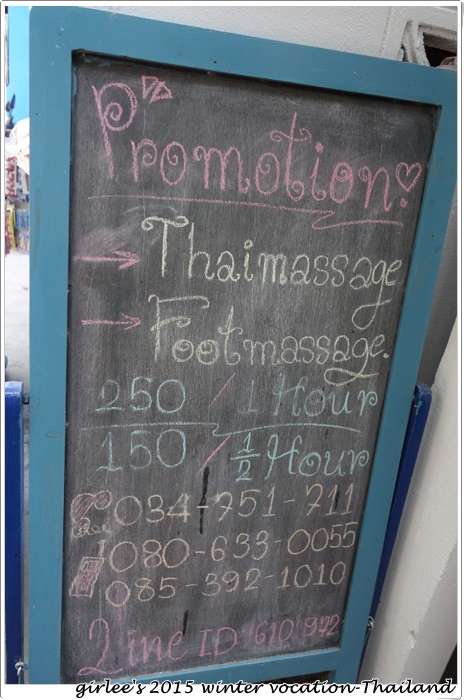 Promotion
Thaimassage
Footmassage.
250 / 1 Hour
150 / 1/2 Hour
034-751-711
080-633-0055
085-392-1010
Line ID 610 972
girlee's 2015 winter vocation-Thailand